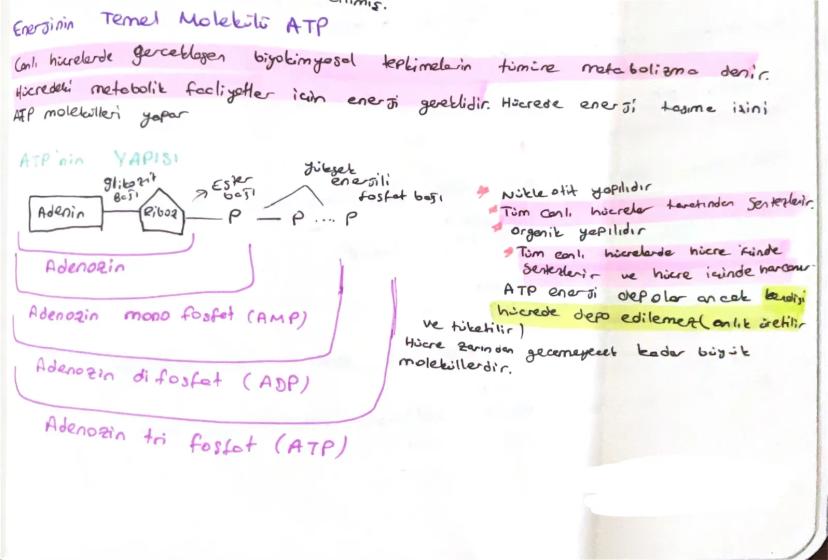 Enerjinin Temel Molekülü ATP
Canlı hücrelerde gerçekleşen biyokimyasal tepkimelerin tümüne metabolizma denir.
Hücredeki metabolik faaliyetler için enerji gereklidir. Hücrede enerji taşıma işini
ATP molekülleri yapar
ATP'nin YAPISI
glikozit
Bağı
Ester
bağı
yüksek
enerjili
fosfat bağı
Adenin
Riboz
P
P
P
Adenozin
Adenozin mono fosfat (AMP)
Adenozin di fosfat (ADP)
Adenozin tri fosfat (ATP)
Nükleotit yapılıdır
Tüm canlı hücreler tarafından sentezlenir.
Organik yapılıdır
Tüm canlı hücrelerde hücre içinde
sentezlenir ve hücre içinde harcanır
ATP enerji depolar ancak kendisi
hücrede depo edilemez (anlık üretilir
ve tüketilir)
Hücre zarından geçemeyecek kadar büyük
moleküllerdir.